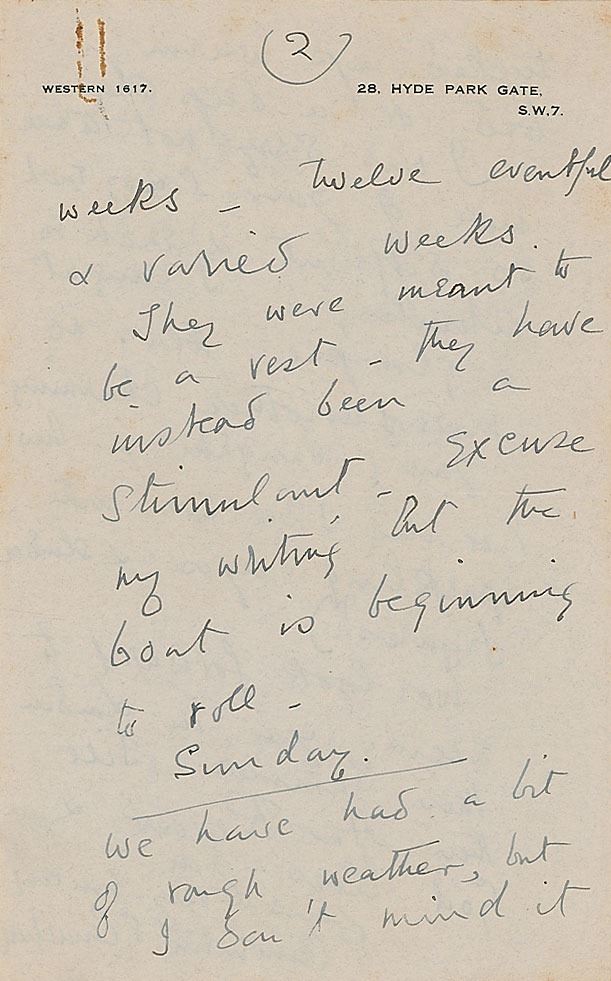 2
WESTERN 1617.
28, HYDE PARK GATE,
S.W.7.
weeks – twelve eventful
& varied weeks.
They were meant to
be a rest – they have
instead been a
stimulant – Excuse
my writing but the
boat is beginning
to roll –
Sunday.
We have had a bit
of rough weather, but
I don't mind it